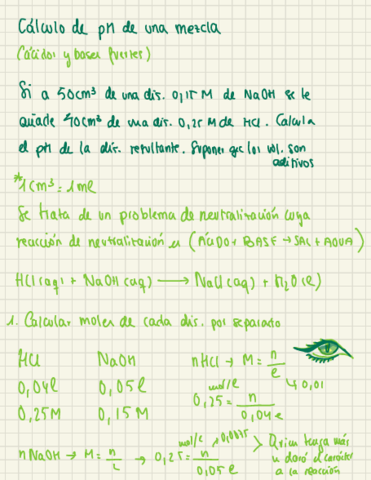 Cálculo de pH de una mezcla
(ácidos y bases fuertes)
Si a 50cm³ de una dis. 0,15 M de NaOH se le
añade 40cm³ de una dis. 0,25 M de HCl. Calcula
el pH de la dis. resultante. Suponer que los vol. son
aditivos
*1cm³ = 1ml
Se trata de un problema de neutralización cuya
reacción de neutralización es (ÁCIDO + BASE → SAL + AGUA)
HCl(aq) + NaOH(aq) → NaCl(aq) + H₂O(l)
1. Calcular moles de cada dis. por separado
HCl NaOH nHCl → M = n/l
0,04l 0,05l mol/l 0,25 = n/0,04l ↳ 0,01
0,25M 0,15M
nNaOH → M = n/L → mol/l 0,25 = n/0,05l → 0,0075 > Quien tenga más
dará el carácter
a la reacción